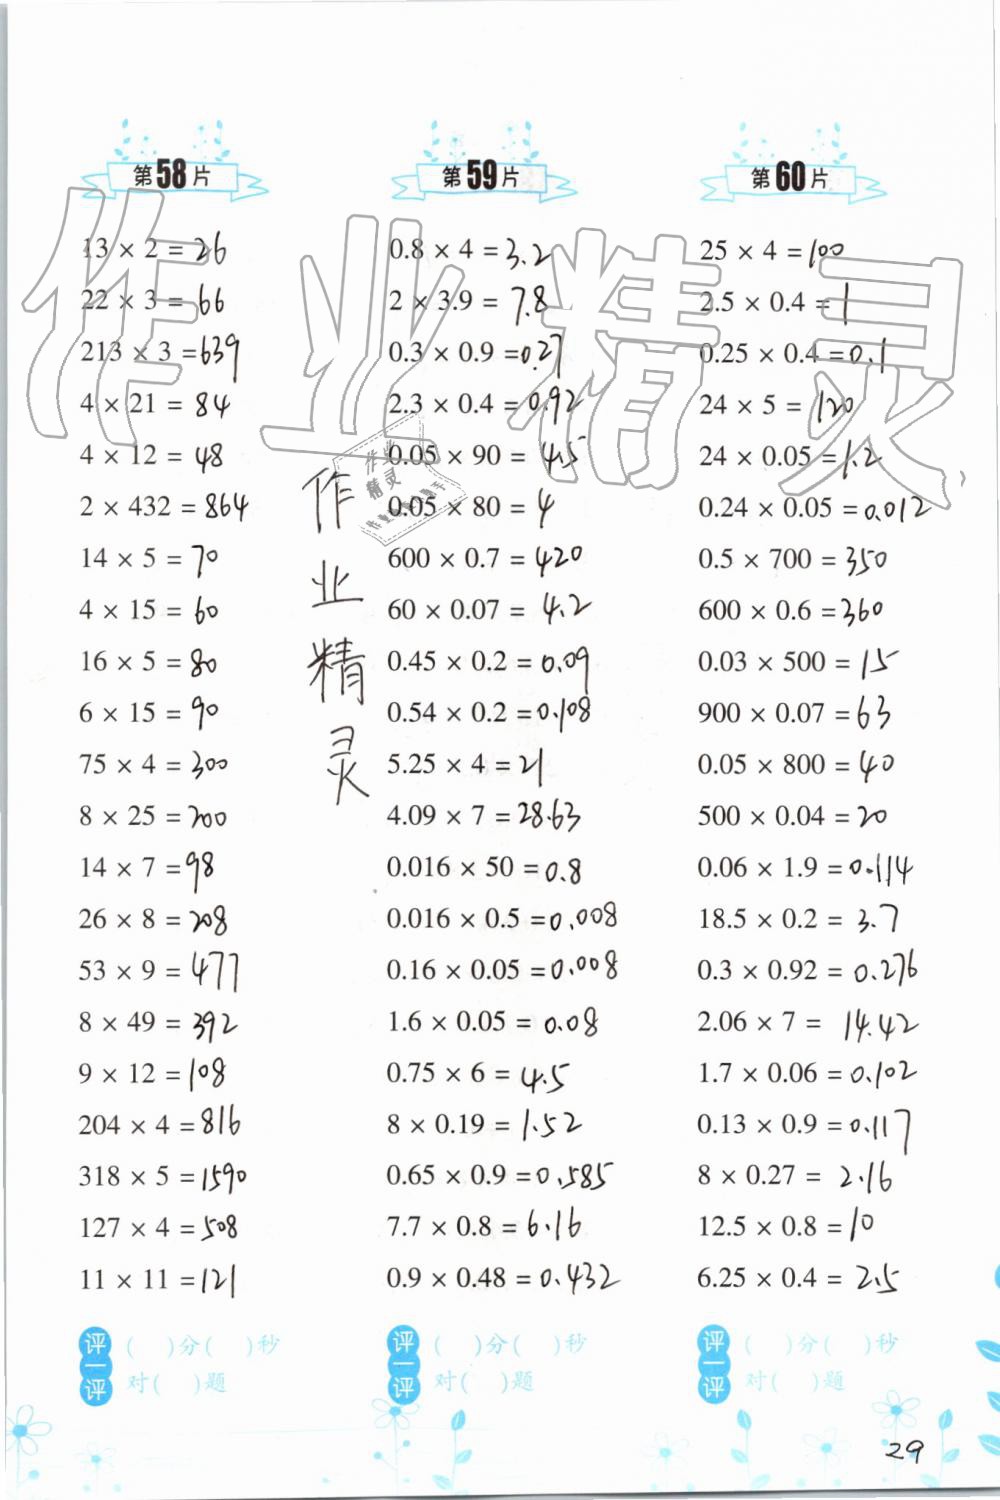 第58片
13 × 2 = 26
22 × 3 = 66
213 × 3 = 639
4 × 21 = 84
4 × 12 = 48
2 × 432 = 864
14 × 5 = 70
4 × 15 = 60
16 × 5 = 80
6 × 15 = 90
75 × 4 = 300
8 × 25 = 200
14 × 7 = 98
26 × 8 = 208
53 × 9 = 477
8 × 49 = 392
9 × 12 = 108
204 × 4 = 816
318 × 5 = 1590
127 × 4 = 508
11 × 11 = 121
评一评 ( )分( )秒
对( )题
第59片
0.8 × 4 = 3.2
2 × 3.9 = 7.8
0.3 × 0.9 = 0.27
2.3 × 0.4 = 0.92
0.05 × 90 = 4.5
0.05 × 80 = 4
600 × 0.7 = 420
60 × 0.07 = 4.2
0.45 × 0.2 = 0.09
0.54 × 0.2 = 0.108
5.25 × 4 = 21
4.09 × 7 = 28.63
0.016 × 50 = 0.8
0.016 × 0.5 = 0.008
0.16 × 0.05 = 0.008
1.6 × 0.05 = 0.08
0.75 × 6 = 4.5
8 × 0.19 = 1.52
0.65 × 0.9 = 0.585
7.7 × 0.8 = 6.16
0.9 × 0.48 = 0.432
评一评 ( )分( )秒
对( )题
第60片
25 × 4 = 100
2.5 × 0.4 = 1
0.25 × 0.4 = 0.1
24 × 5 = 120
24 × 0.05 = 1.2
0.24 × 0.05 = 0.012
0.5 × 700 = 350
600 × 0.6 = 360
0.03 × 500 = 15
900 × 0.07 = 63
0.05 × 800 = 40
500 × 0.04 = 20
0.06 × 1.9 = 0.114
18.5 × 0.2 = 3.7
0.3 × 0.92 = 0.276
2.06 × 7 = 14.42
1.7 × 0.06 = 0.102
0.13 × 0.9 = 0.117
8 × 0.27 = 2.16
12.5 × 0.8 = 10
6.25 × 0.4 = 2.5
评一评 ( )分( )秒
对( )题
作业精灵
作业精灵
作业
精灵
29